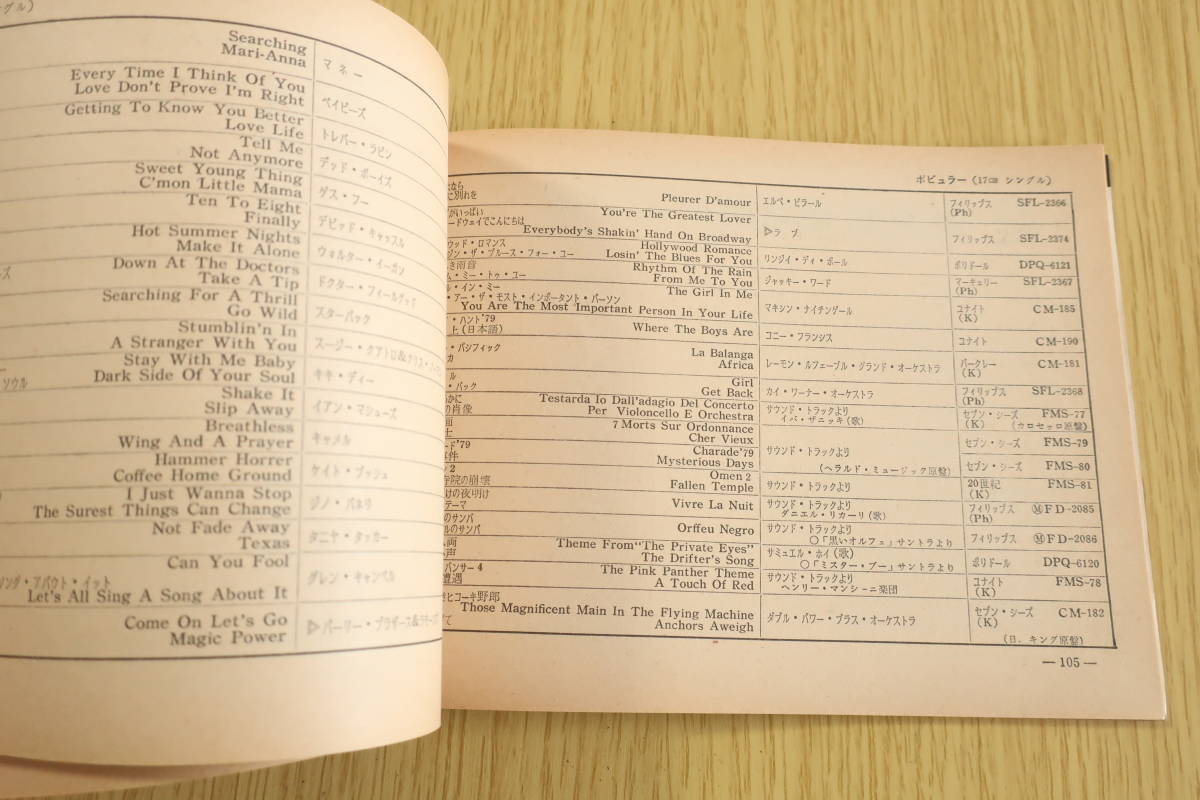 グル)
Searching
Mari-Anna
マネー
Every Time I Think Of You
Love Don't Prove I'm Right
ベイビーズ
Getting To Know You Better
Love Life
トレバー・ラビン
Tell Me
Not Anymore
デッド・ボーイズ
Sweet Young Thing
C'mon Little Mama
ゲス・フー
Ten To Eight
Finally
デビッド・キャッスル
Hot Summer Nights
Make It Alone
ウォルター・イーガン
Down At The Doctors
Take A Tip
ドクター・フィールグッド
Searching For A Thrill
Go Wild
スターバック
Stumblin'n In
A Stranger With You
スージー・クアトロ&クリス・
Stay With Me Baby
Dark Side Of Your Soul
ソウル
キキ・ディー
Shake It
Slip Away
イアン・マシューズ
Breathless
Wing And A Prayer
キャメル
Hammer Horrer
Coffee Home Ground
ケイト・ブッシュ
I Just Wanna Stop
The Surest Things Can Change
ジノ・バネリ
Not Fade Away
Texas
タニヤ・タッカー
Can You Fool
ソング・アバウト・イット
Let's All Sing A Song About It
グレン・キャンベル
Come On Let's Go
Magic Power
▷パーリー・ブラザーズ&ラモーンズ
ポピュラー (17㎝ シングル)
なら
に別れを
Pleurer D'amour
エルベ・ビラール
フィリップス
(Ph)
SFL-2366
がいっぱい
You're The Greatest Lover
ードウェイでこんにちは
Everybody's Shakin' Hand On Broadway
▷ラブ
フィリップス
SFL-2374
ウッド・ロマンス
Hollywood Romance
ジン・ザ・ブルース・フォー・ユー
Losin' The Blues For You
リンジイ・ディ・ポール
ポリドール
DPQ-6121
き雨音
Rhythm Of The Rain
ム・ミー・トゥ・ユー
From Me To You
ジャッキー・ワード
マーキュリー
(Ph)
SFL-2367
ル・イン・ミー
The Girl In Me
・アー・ザ・モスト・インポータント・パーソン
You Are The Most Important Person In Your Life
マキシン・ナイチンゲール
ユナイト
(K)
CM-185
・ハント'79
上(日本語)
Where The Boys Are
コニー・フランシス
ユナイト
CM-190
・パシフィック
La Balanga
カ
Africa
レーモン・ルフェーブル・グランド・オーケストラ
バークレー
(K)
CM-181
ル
Girl
・バック
Get Back
カイ・ワーナー・オーケストラ
フィリップス
(Ph)
SFL-2368
かに
Testarda Io Dall'adagio Del Concerto
の肖像
Per Violoncello E Orchestra
サウンド・トラックより
イバ・ザニッキ(歌)
セブン・シーズ
(K)
FMS-77
(カロセッロ原盤)
7 Morts Sur Ordonnance
士
Cher Vieux
サウンド・トラックより
セブン・シーズ
FMS-79
ード'79
Charade'79
事件
Mysterious Days
(ヘラルド・ミュージック原盤)
セブン・シーズ
FMS-80
ン2
Omen 2
寺院の崩壊
Fallen Temple
サウンド・トラックより
20世紀
(K)
FMS-81
けの夜明け
テーマ
Vivre La Nuit
サウンド・トラックより
ダニエル・リカーリ(歌)
フィリップス
(Ph)
ⓂFD-2085
のサンバ
ルのサンバ
Orffeu Negro
サウンド・トラックより
○「黒いオルフェ」サントラより
フィリップス
ⓂFD-2086
両
Theme From "The Private Eyes"
い声
The Drifter's Song
サミュエル・ホイ(歌)
○「ミスター・ブー」サントラより
ポリドール
DPQ-6120
パンサー4
The Pink Panther Theme
遭遇
A Touch Of Red
サウンド・トラックより
ヘンリー・マンシーニ楽団
ユナイト
(K)
FMS-78
ヒコーキ野郎
Those Magnificent Main In The Flying Machine
て
Anchors Aweigh
ダブル・パワー・ブラス・オーケストラ
セブン・シーズ
(K)
CM-182
(日．キング原盤)
—105—